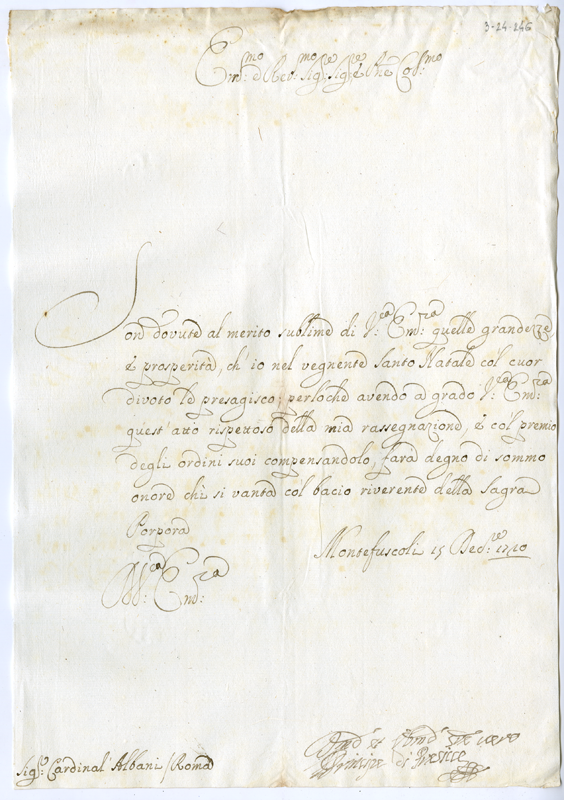 3-24-246
Em.mo e Rev.mo Sig.re Sig.re e Pne Col.mo
Son dovute al merito sublime di V.ra Em.za quelle grandezze,
e prosperità, ch'io nel vegnente Santo Natale col cuor
divoto le presagisco; perloche avendo a grado V.ra Em.za
quest'atto rispettoso della mia rassegnazione, e col premio
degli ordini suoi compensandolo, farà degno di sommo
onore chi si vanta col bacio riverente della Sagra
Porpora
Montefuscoli 15 Dec.re 1710
Di V.ra Em.za
Sig.r Cardinal Albani / Roma
Principe di